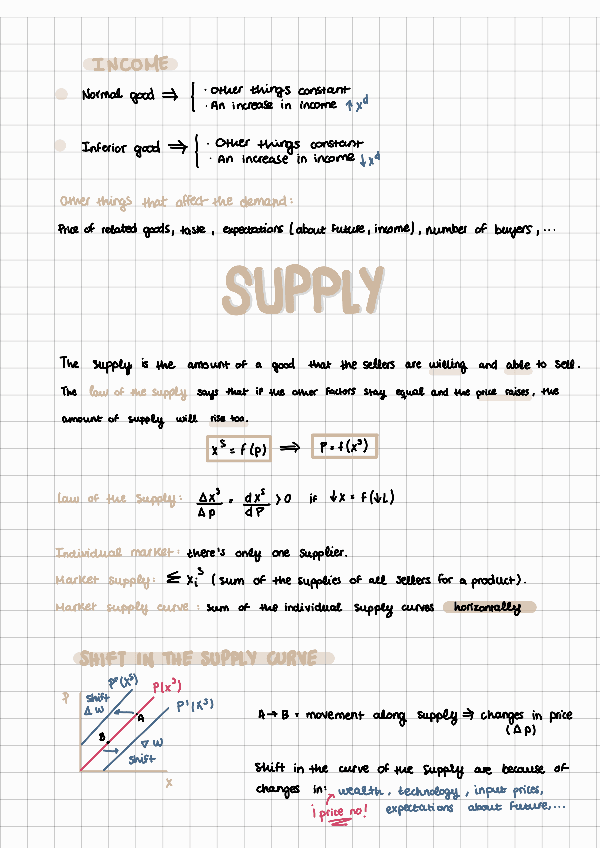 INCOME
Normal good ⇒ { · Other things constant
· An increase in income ↑x^d
Inferior good ⇒ { · Other things constant
· An increase in income ↓x^d
Other things that affect the demand:
Price of related goods, taste, expectations (about future, income), number of buyers,...
SUPPLY
The supply is the amount of a good that the sellers are willing and able to sell.
The law of the supply says that if the other factors stay equal and the price raises, the
amount of supply will rise too.
x^s = f(p) ⇒ P = f(x^s)
Law of the supply: Δx^s/Δp = dx^s/dP > 0 if ↓x = f(↓L)
Individual market: there's only one supplier.
Market supply: Σ x_i^s (sum of the supplies of all sellers for a product).
Market supply curve: sum of the individual supply curves horizontally
SHIFT IN THE SUPPLY CURVE
P
shift
Δ W
P°(x^s)
P(x^s)
P'(x^s)
A
B
∇ W
shift
X
A→B = movement along supply ⇒ changes in price
(Δp)
Shift in the curve of the supply are because of
changes in: wealth, technology, input prices,
¡price no! expectations about future,...